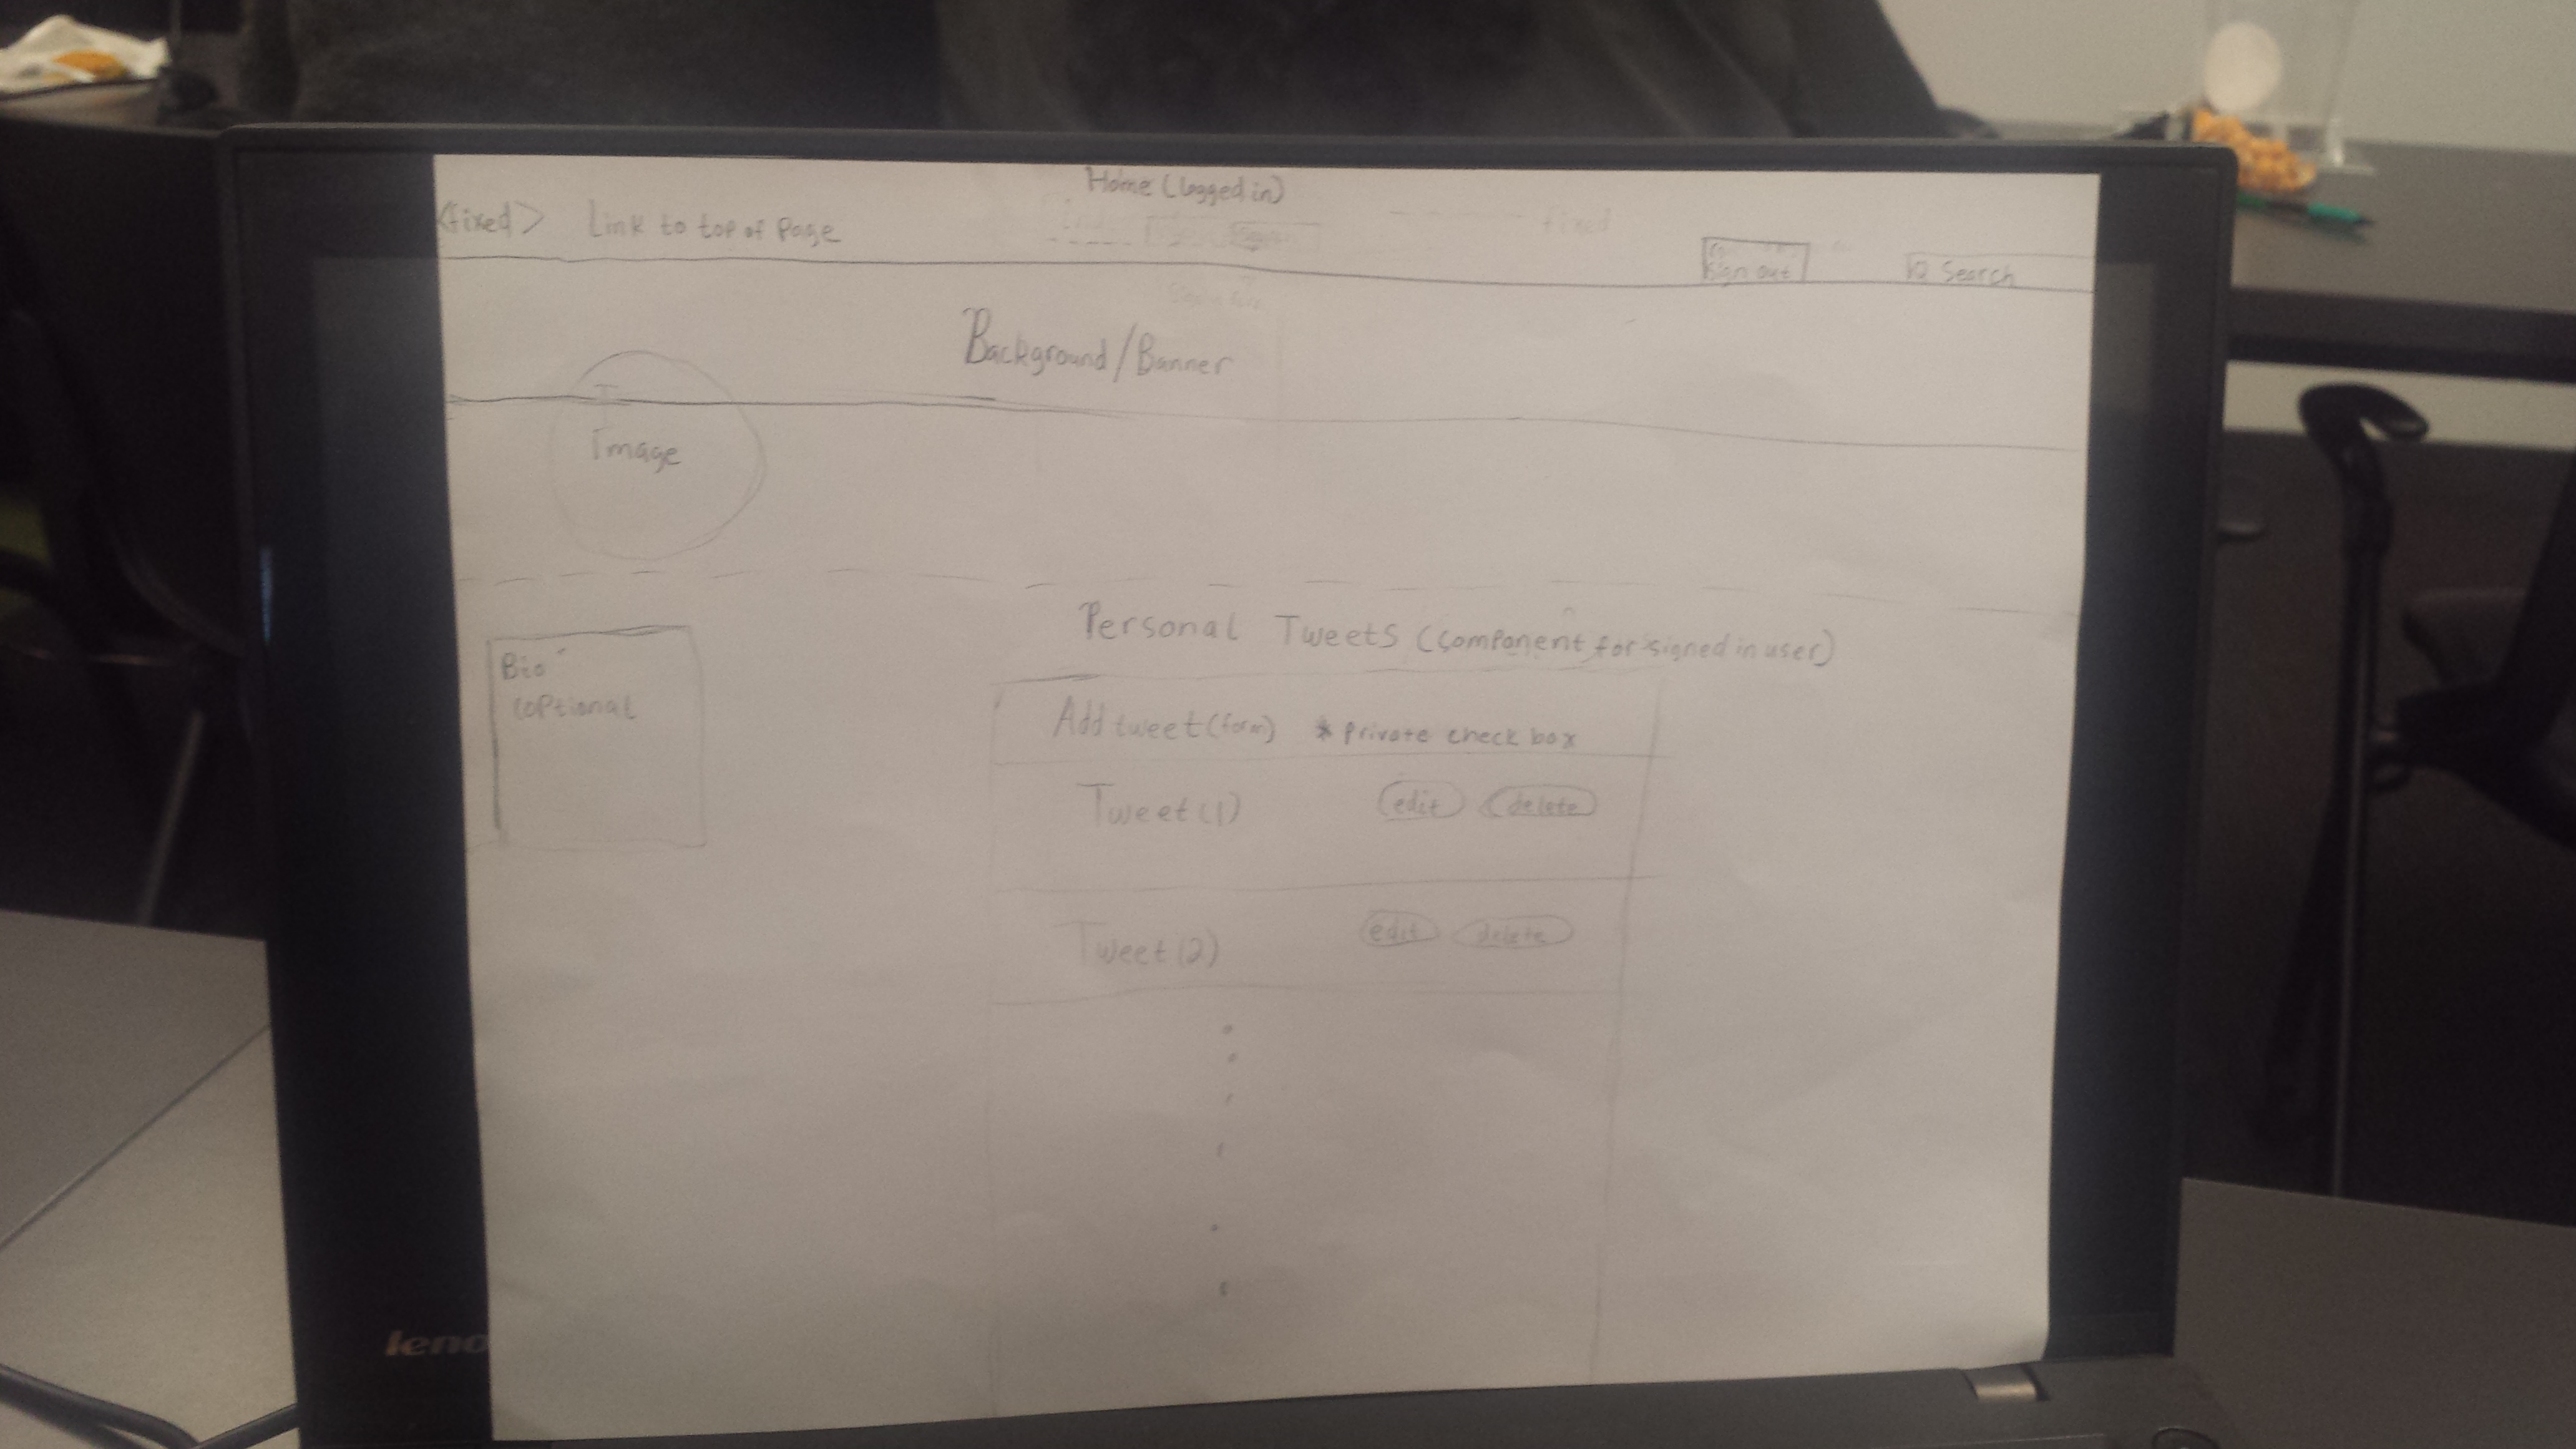 Home (logged in)
<fixed> Link to top of Page
fixed
Sign out
Search
Background/Banner
Image
Personal Tweets (Component for signed in user)
Bio
(optional
Add tweet (form) * Private check box
Tweet (1) edit delete
Tweet (2) edit delete
leno